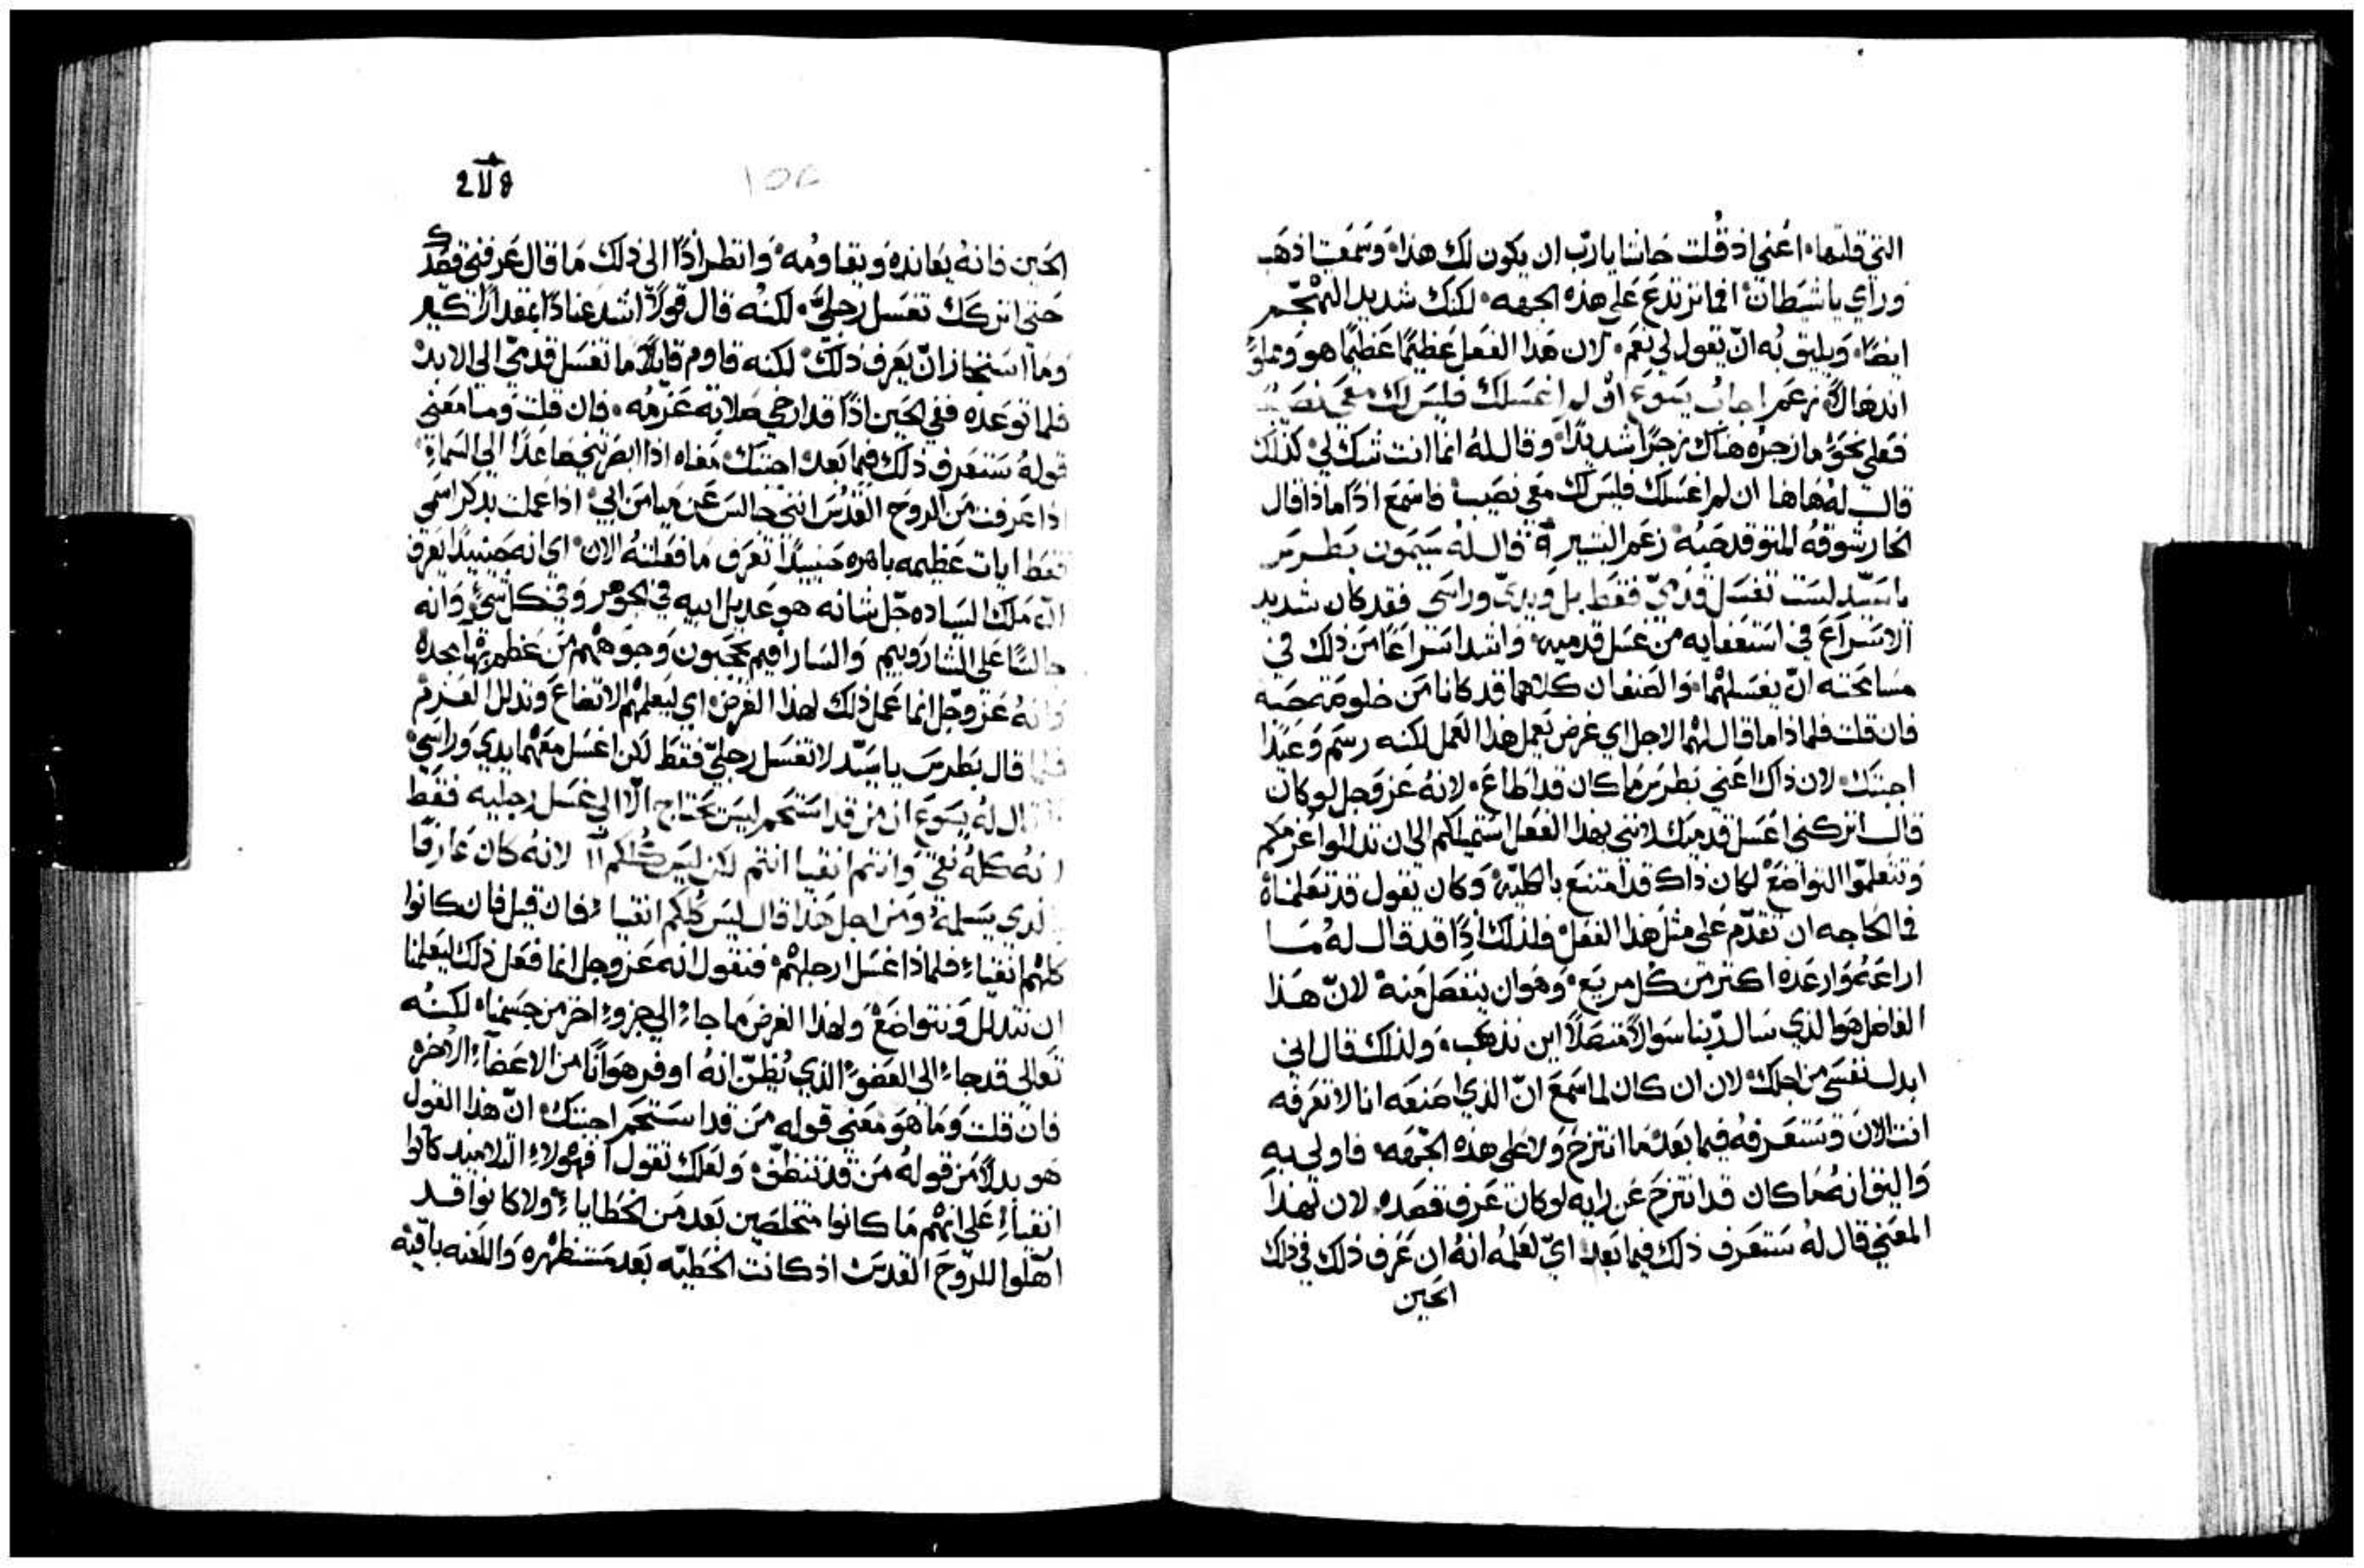 التي قلتها اعني اذ قلت حاشا يارب ان يكون لك هذا وسمعت اذهب
وراي ياشيطان افما ترتدع على هذه الجهه لكنك شديد التهجم
ايضا ويليق به ان يقول لي نعم لان هذا الفعل عظيما عظيما هو ومملو
اندهالا زعم اجاب يسوع ان لم اغسلك فليس لك معي نصيب
فعلى نحو ما زجره هناك زجرا شديدا وقال له انما انت شك لي كذلك
قال له هاهنا ان لم اغسلك فليس لك معي نصيب فاسمع اذا ماذا قال
الحار شوقه المتوقد حبه زعم البشير قال له سيمون بطرس
ياسيد لست تغسل قدمي فقط بل ويدي وراسي فقد كان شديد
الاسراع في استعفايه من غسل قدميه واشد اسراعا من ذلك في
مسامحته ان يغسلهما والصنفان كلاهما قد كانا من خلوصة حبه
فان قلت فلماذا ما قال لهما لاجل اي غرض يعمل هذا العمل لكنه رسم وعيدا
اجبتك لان ذاك اعني بطرس ما كان قد اطاع لانه عز وجل لو كان
قال اتركني اغسل قدميك لانني بهذا الفعل استميلكم الى ان تذللوا عزمكم
وتتعلموا التواضع لكان ذاك قد امتنع بالكليه وكان يقول قد تعلمناه
فما الحاجه ان تقدم على مثل هذا الفعل فلذلك اذا قد قال له ما
اراعه وارعده اكثر من كل مريع وهو ان ينفصل منه لان هذا
الفاضل هو الذي سال ربنا سوالا متصلا اين تذهب ولذلك قال اني
ابذل نفسي من اجلك لان ان كان لما سمع ان الذي اصنعه انا لا تعرفه
انت الان وستعرفه فيما بعد ما انتزح ولا على هذه الجهه فاولى به
واليق انه ما كان قد انتزح عن رايه لو كان عرف قصده لان لهذا
المعني قال له ستعرف ذلك فيما بعد اي لعلمه انه ان عرف ذلك في ذلك
الحين
الحين فانه يعانده ويقاومه وانظر اذا الى ذلك ما قال عرفني قصدك
حتى اتركك تغسل رجلي لكنه قال قولا اشد عنادا بمقدار كثير
وما استخار ان يعرف ذلك لكنه قاوم قايلا ما تغسل قدمي الى الابد
فلما توعده ففي الحين اذا قد ارخى صلابة عزمه فان قلت وما معني
قوله ستعرف ذلك فيما بعد اجبتك معناه اذا ابصرتني صاعدا الى السماء
اذا عرفت من الروح القدس انني جالس عن ميامن ابي اذا عملت بذكر اسمي
فقط ايات عظيمه باهره حينيذ تعرف ما فعلته الان اي انه حينيذ يعرف
ان ملك الساده جل شانه هو عديل ابيه في الجوهر وفي كل شي وانه
جالسا على الشاروبيم والسارافيم يحجبون وجوههم من عظم بهاء مجده
وانه عز وجل انما عمل ذلك لهذا الغرض اي ليعلمهم الاتضاع وتذلل العزم
فلما قال بطرس ياسيد لا تغسل رجلي فقط لكن اغسل معهما يدي وراسي
قال له يسوع ان من قد استحم ليس يحتاج الا الى غسل رجليه فقط
انه كله نقي وانتم انقيا انتم لكن ليس كلكم لانه كان عارفا
الذي يسلمه ومن اجل هذا قال ليس كلكم انقيا فان قيل فان كانوا
كلهم انقياء فلماذا غسل ارجلهم فنقول انه عز وجل انما فعل ذلك ليعلمنا
ان نتذلل ونتواضع ولهذا الغرض ما جاء الى جزو اخر من جسمنا لكنه
تعالى قد جاء الى العضو الذي يظن انه اوفر هوانا من الاعضاء الاخره
فان قلت وما هو معني قوله من قد استحم اجبتك ان هذا القول
هو بدلا من قوله من قد تنظف ولعلك تقول افهولاء التلاميذ كانوا
انقياء على انهم ما كانوا متخلصين بعد من الخطايا ولا كانوا قد
اهلوا للروح القدس اذ كانت الخطيه بعد مستظهره واللعنه باقيه